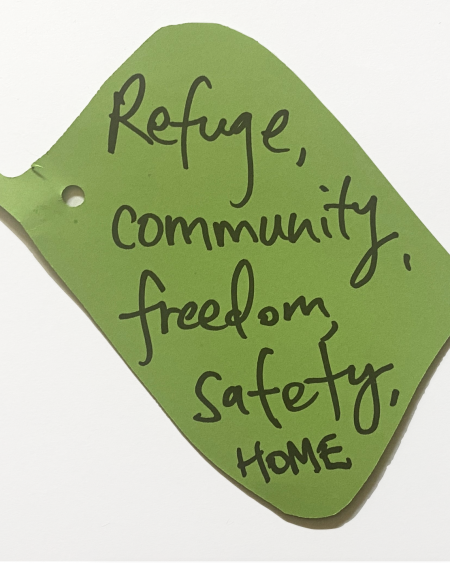 Refuge,
community,
freedom,
safety,
HOME